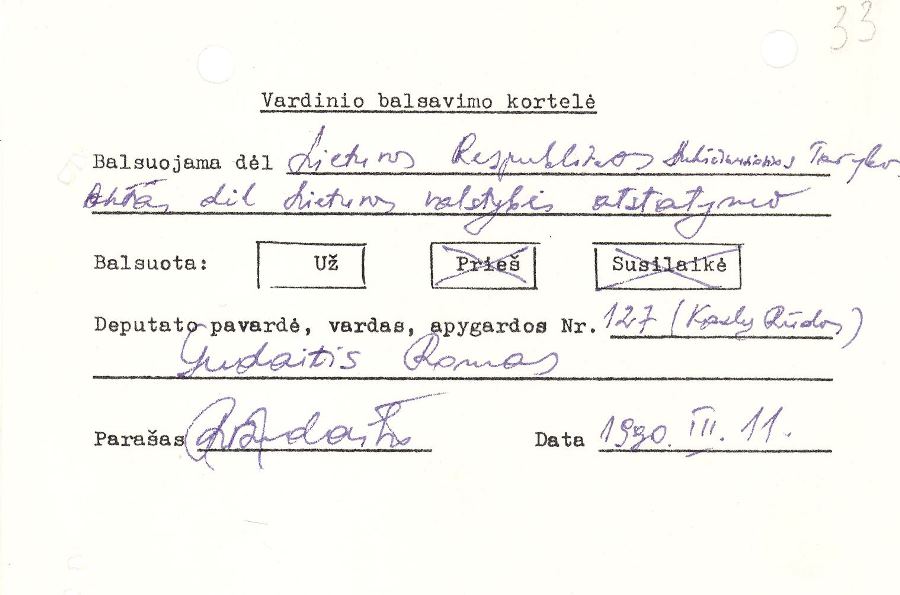 33
Vardinio balsavimo kortelė
Balsuojama dėl Lietuvos Respublikos Aukščiausiosios Tarybos
Aktas dėl Lietuvos valstybės atstatymo
Balsuota: Už Prieš Susilaikė
Deputato pavardė, vardas, apygardos Nr. 127 (Kazlų Rūdos)
Gudaitis Romas
Parašas Data 1990. III. 11.